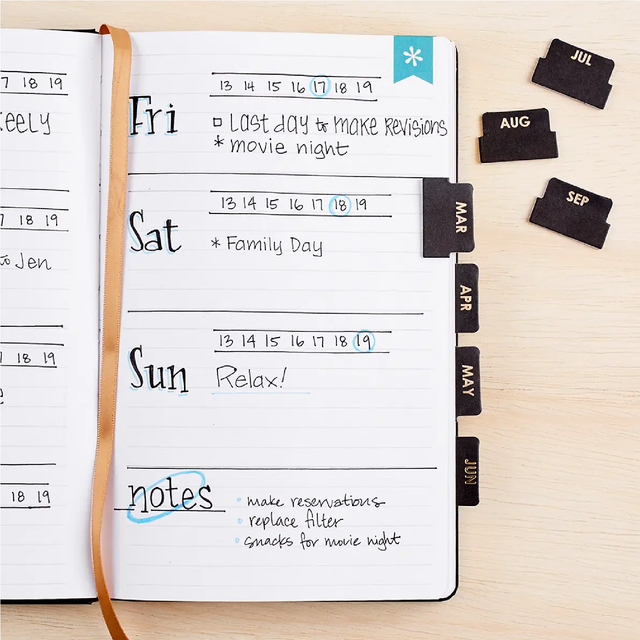 7 18 19
eely
7 18 19
to Jen
7 18 19
18 19
*
13 14 15 16 17 18 19
Fri
□ Last day to make Revisions
* movie night
13 14 15 16 17 18 19
Sat
* Family Day
13 14 15 16 17 18 19
Sun
Relax!
notes
• make reservations
• replace filter
• snacks for movie night
MAR
APR
MAY
JUN
JUL
AUG
SEP